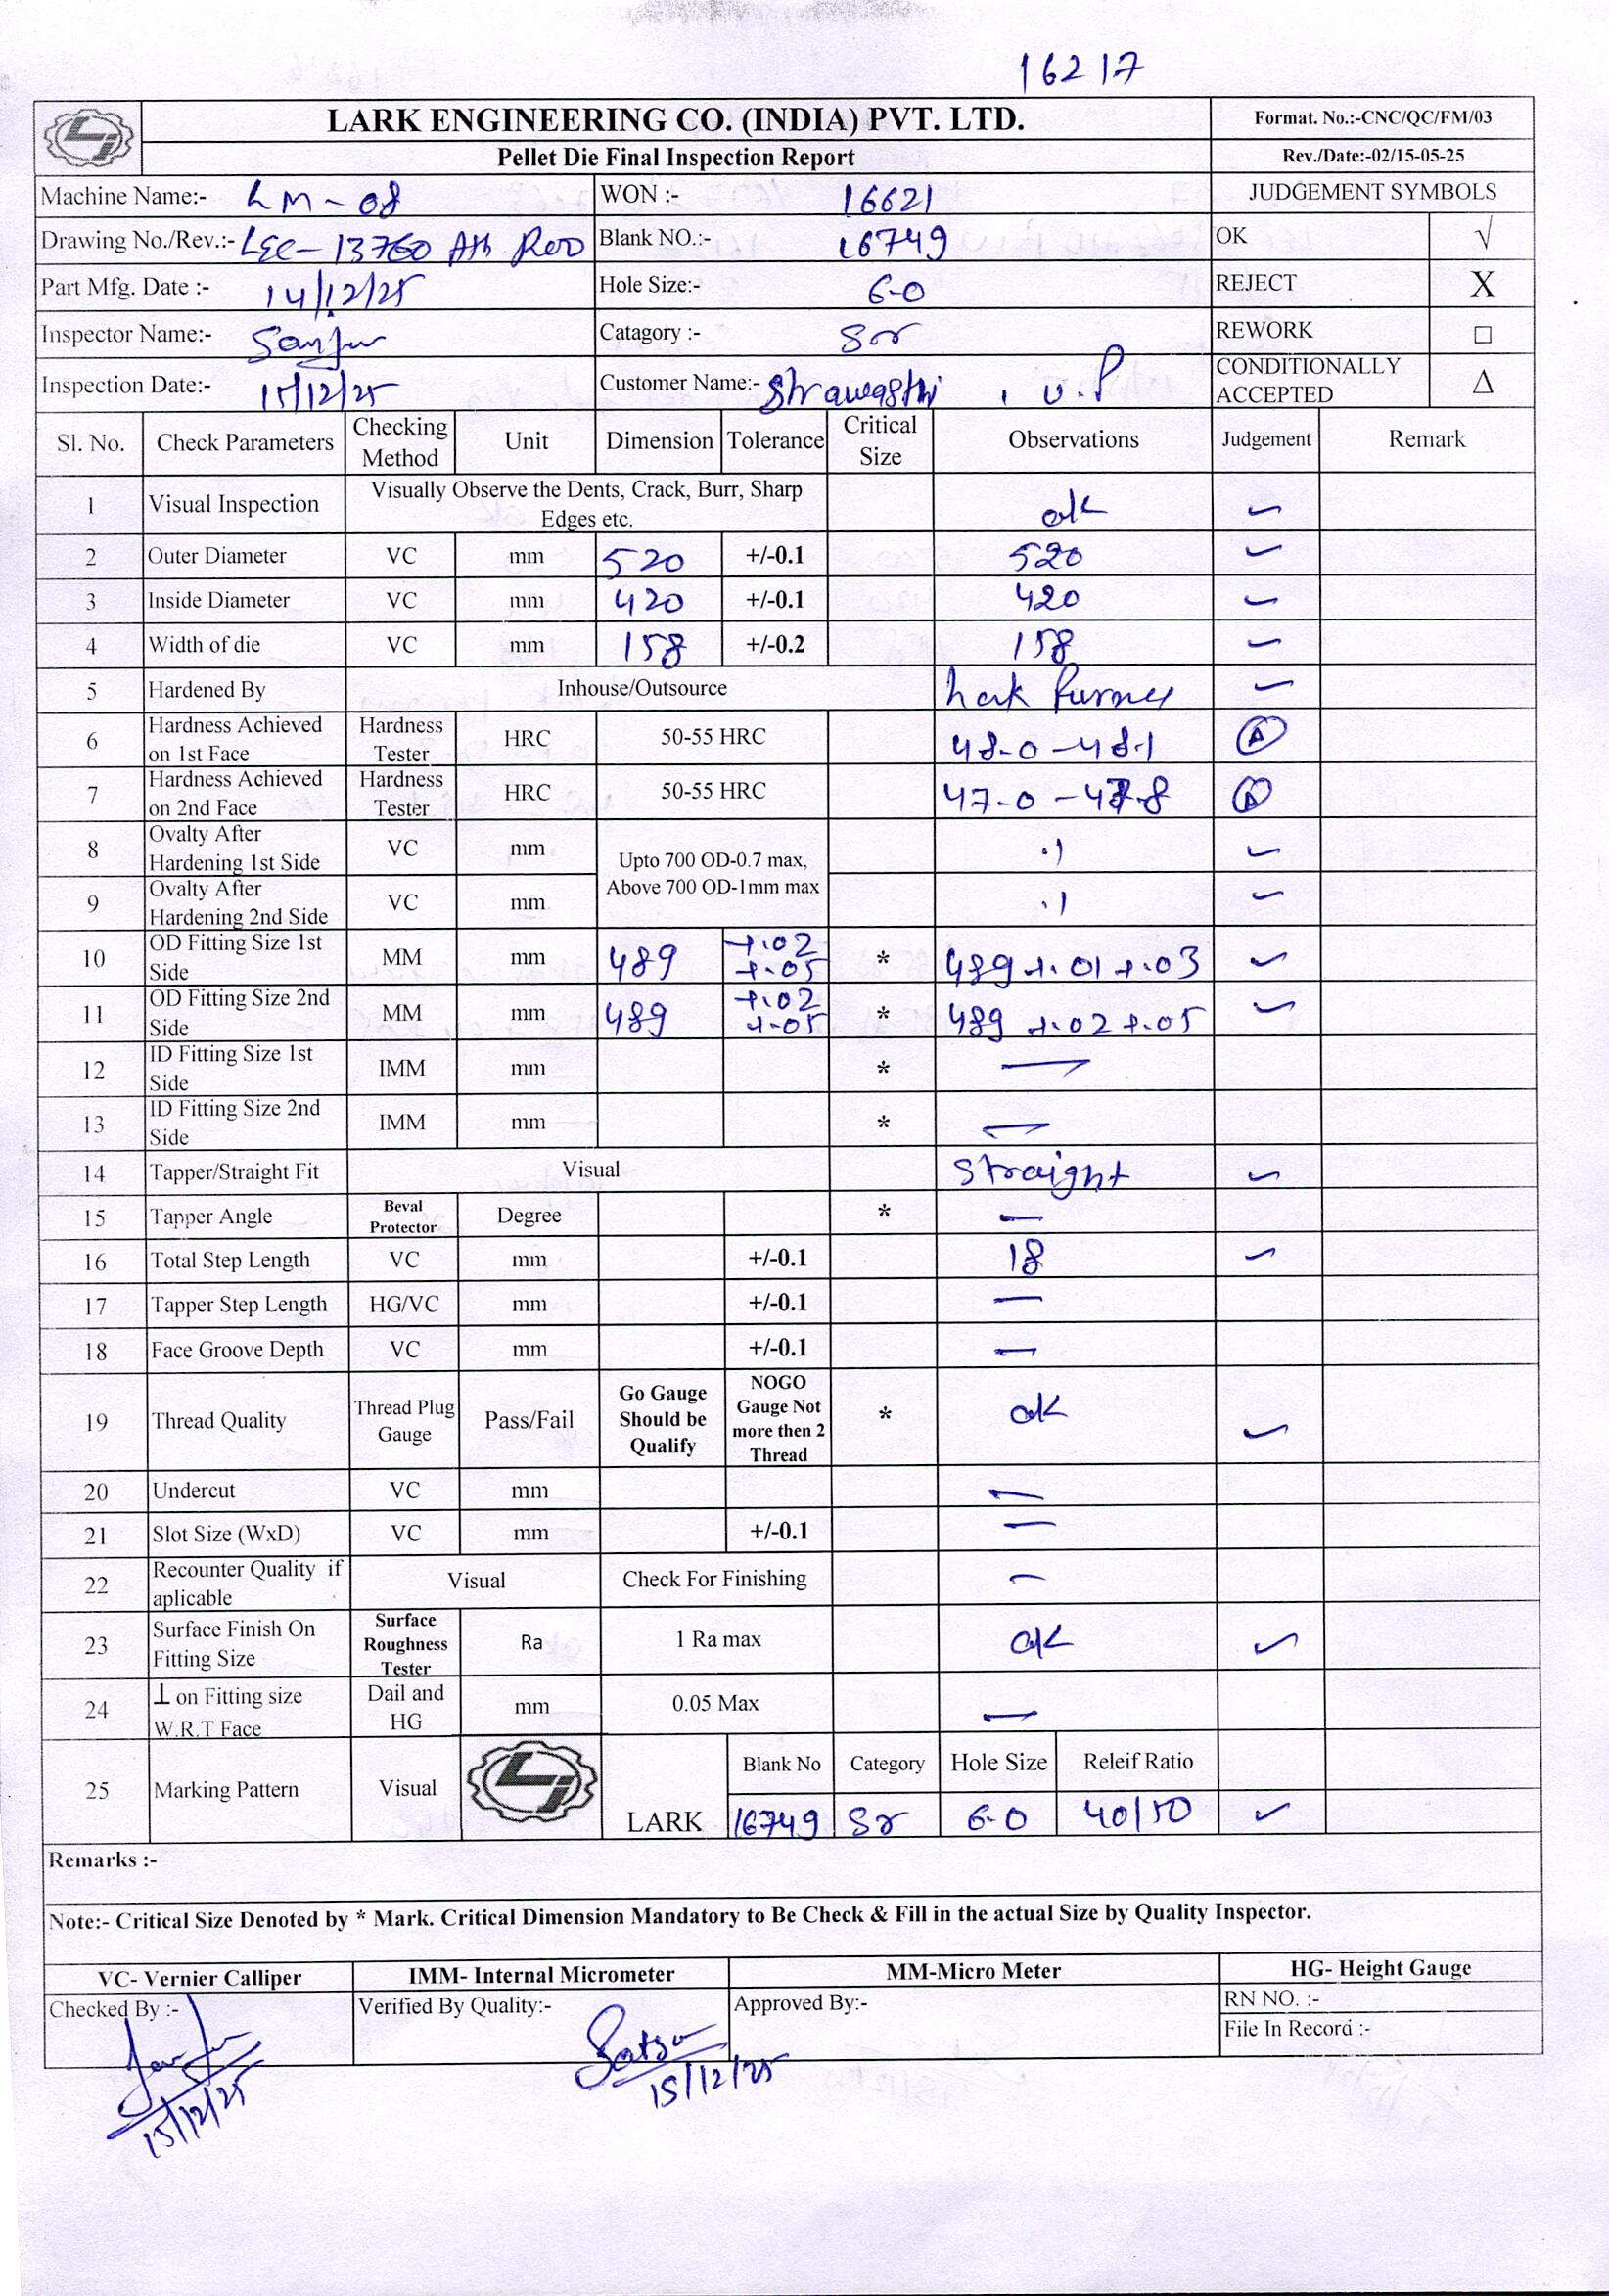 16217
LARK ENGINEERING CO. (INDIA) PVT. LTD. Format. No.:-CNC/QC/FM/03
Pellet Die Final Inspection Report Rev./Date:-02/15-05-25
Machine Name:- LM-08 WON :- 16621 JUDGEMENT SYMBOLS
Drawing No./Rev.:- LEC-13760 Blank NO.:- 16749 OK √
Part Mfg. Date :- 14/12/25 Hole Size:- 6.0 REJECT X
Inspector Name:- Catagory :- Sr REWORK □
Inspection Date:- 15/12/25 Customer Name:- Shrawasthi, U.P CONDITIONALLY ACCEPTED Δ
Sl. No. Check Parameters Checking Method Unit Dimension Tolerance Critical Size Observations Judgement Remark
1 Visual Inspection Visually Observe the Dents, Crack, Burr, Sharp Edges etc. ok ✓
2 Outer Diameter VC mm 520 +/-0.1 520 ✓
3 Inside Diameter VC mm 420 +/-0.1 420 ✓
4 Width of die VC mm 158 +/-0.2 158 ✓
5 Hardened By Inhouse/Outsource Lark ✓
6 Hardness Achieved on 1st Face Hardness Tester HRC 50-55 HRC 48.0-48.1 Ⓐ
7 Hardness Achieved on 2nd Face Hardness Tester HRC 50-55 HRC 47.0-47.8 Ⓐ
8 Ovalty After Hardening 1st Side VC mm Upto 700 OD-0.7 max, Above 700 OD-1mm max .1 ✓
9 Ovalty After Hardening 2nd Side VC mm .1 ✓
10 OD Fitting Size 1st Side MM mm 489 +.02 +.05 * 489 +.01 +.03 ✓
11 OD Fitting Size 2nd Side MM mm 489 +.02 +.05 * 489 +.02 +.05 ✓
12 ID Fitting Size 1st Side IMM mm * —
13 ID Fitting Size 2nd Side IMM mm * —
14 Tapper/Straight Fit Visual Straight ✓
15 Tapper Angle Beval Protector Degree * —
16 Total Step Length VC mm +/-0.1 18 ✓
17 Tapper Step Length HG/VC mm +/-0.1 —
18 Face Groove Depth VC mm +/-0.1 —
19 Thread Quality Thread Plug Gauge Pass/Fail Go Gauge Should be Qualify NOGO Gauge Not more then 2 Thread * ok ✓
20 Undercut VC mm —
21 Slot Size (WxD) VC mm +/-0.1 —
22 Recounter Quality if aplicable Visual Check For Finishing —
23 Surface Finish On Fitting Size Surface Roughness Tester Ra 1 Ra max ok ✓
24 ⊥ on Fitting size W.R.T Face Dail and HG mm 0.05 Max —
25 Marking Pattern Visual LARK Blank No Category Hole Size Releif Ratio
16749 Sr 6.0 40/50 ✓
Remarks :-
Note:- Critical Size Denoted by * Mark. Critical Dimension Mandatory to Be Check & Fill in the actual Size by Quality Inspector.
VC- Vernier Calliper IMM- Internal Micrometer MM-Micro Meter HG- Height Gauge
Checked By :- Verified By Quality:- Approved By:- RN NO. :-
File In Record :-
15/12/25 15/12/25